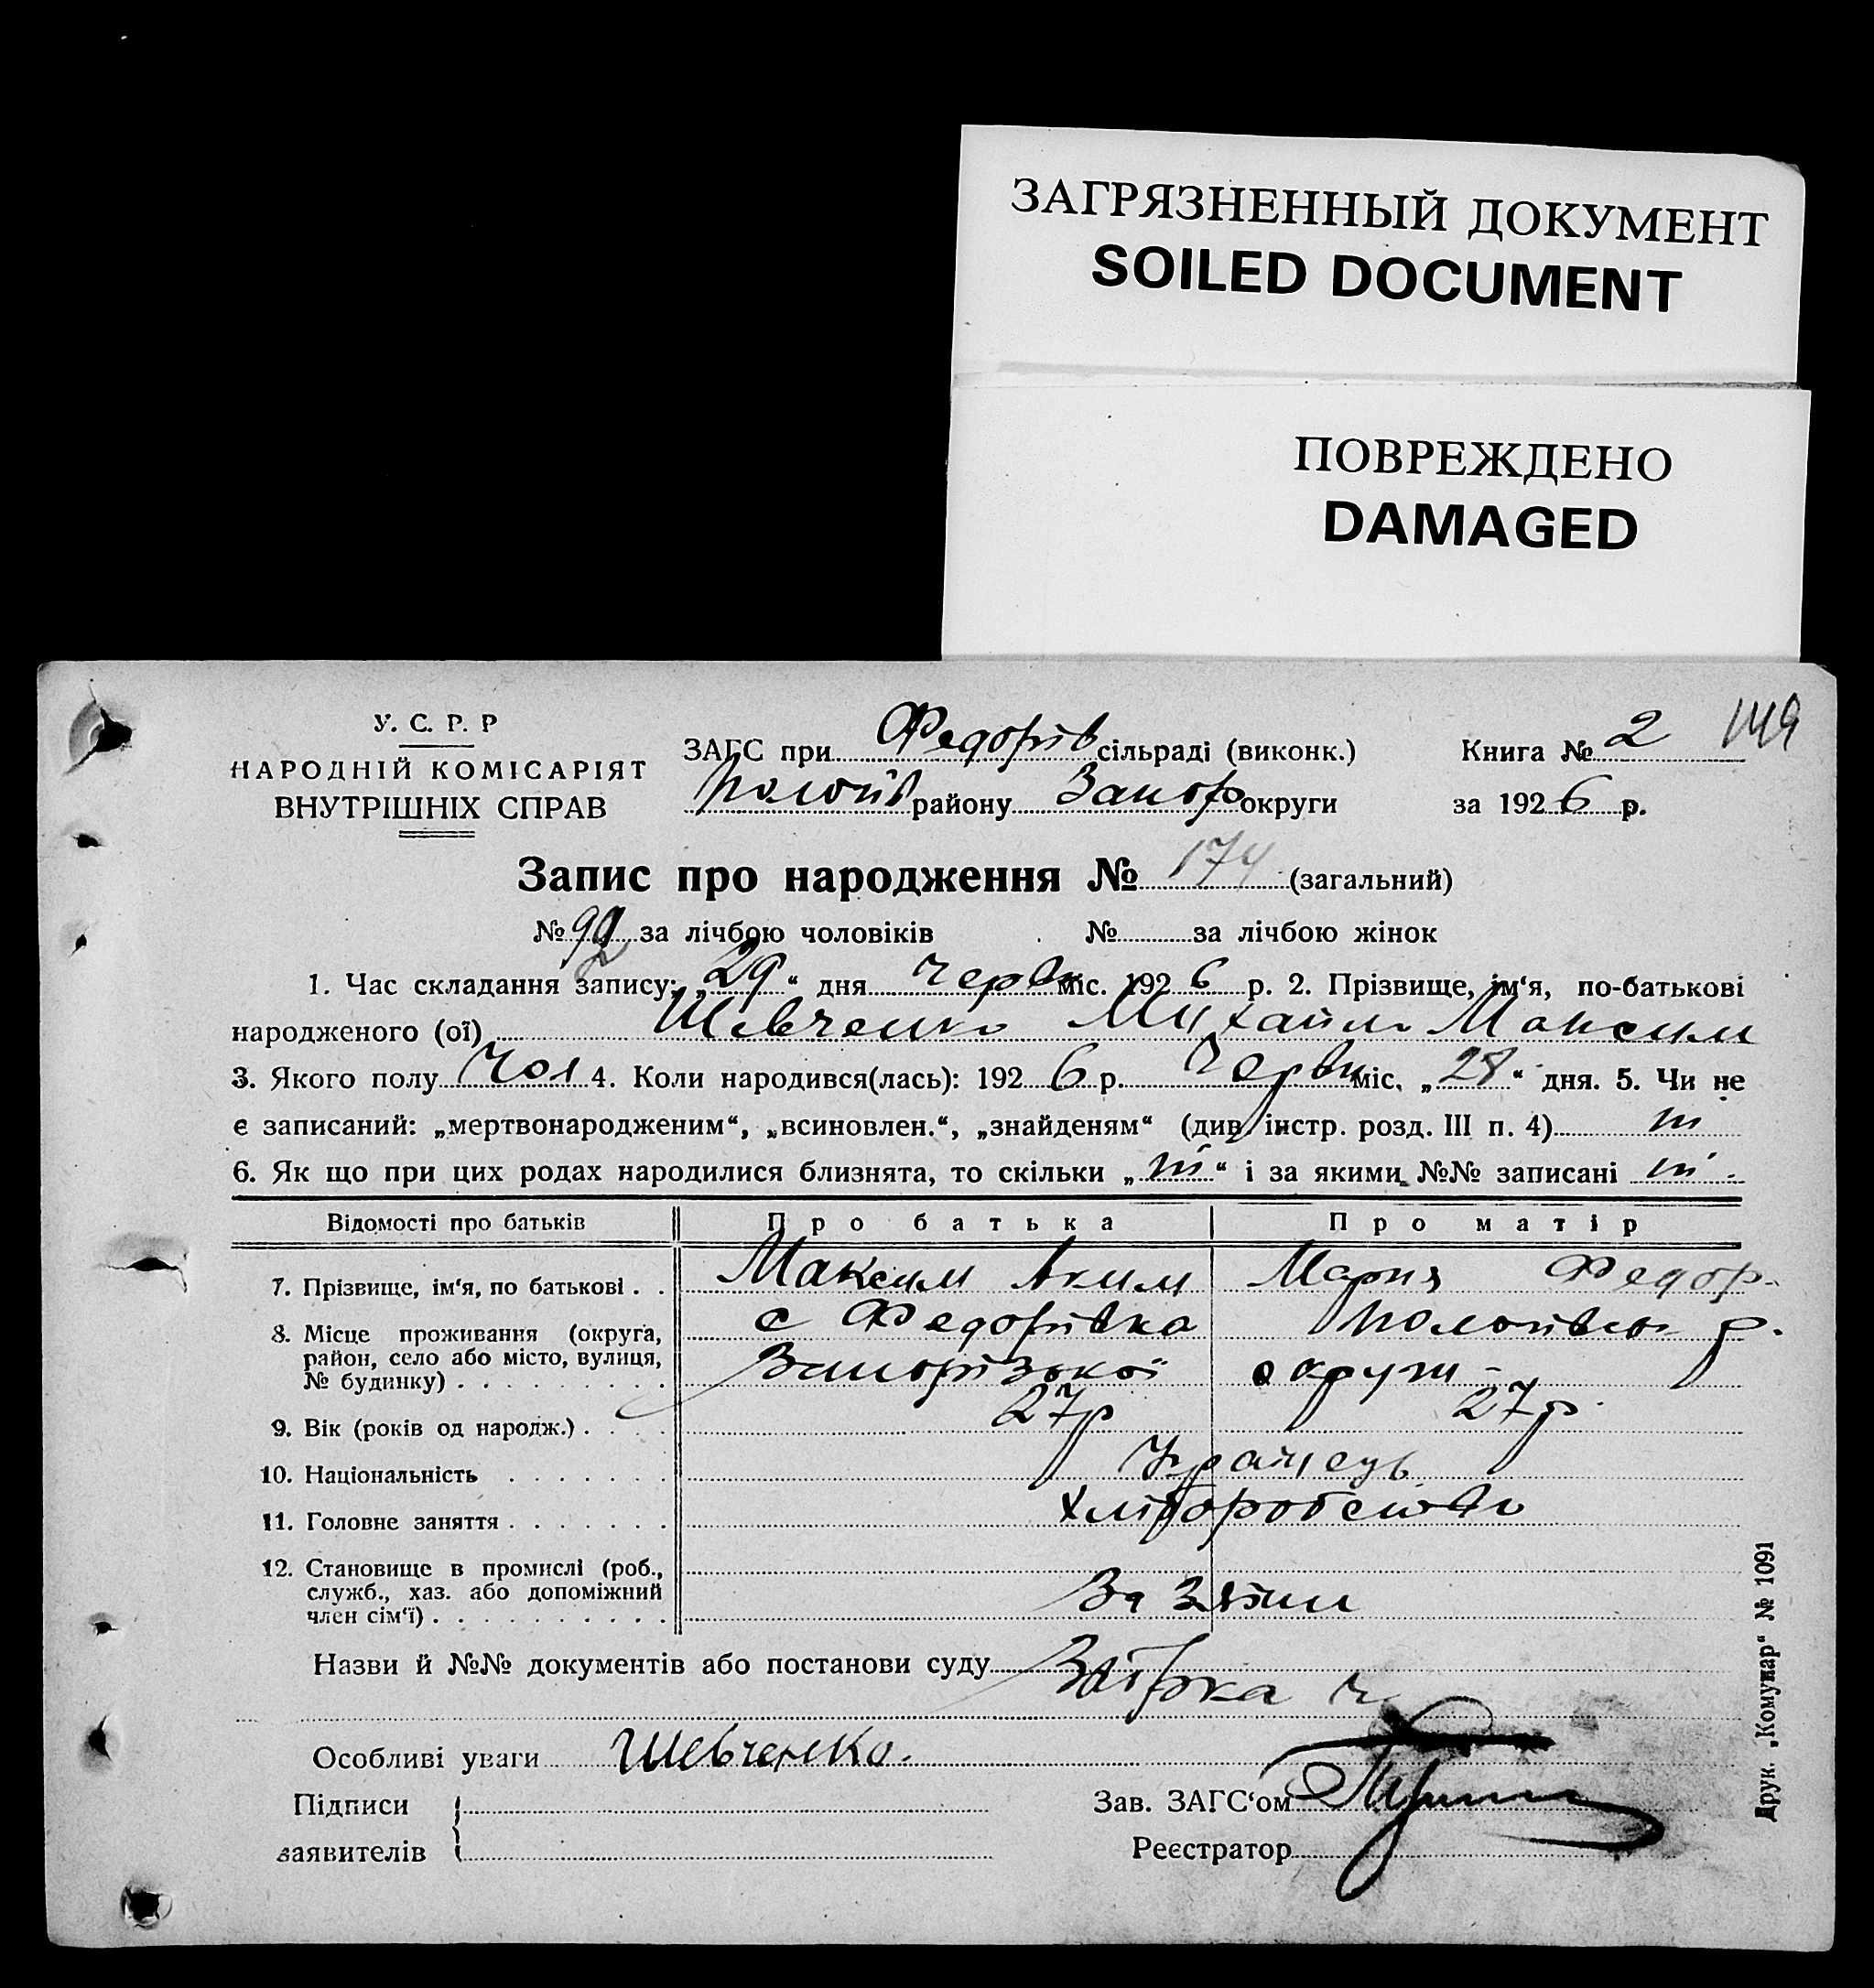 ЗАГРЯЗНЕННЫЙ ДОКУМЕНТ
SOILED DOCUMENT
ПОВРЕЖДЕНО
DAMAGED
149
У. С. Р. Р
НАРОДНІЙ КОМІСАРІЯТ
ВНУТРІШНІХ СПРАВ
ЗАГС при Федорів сільраді (виконк.)
району Запор округи
Книга № 2
за 1926 р.
Запис про народження № 174 (загальний)
№ 92 за лічбою чоловіків № за лічбою жінок
1. Час складання запису: „29“ дня Червн міс. 1926 р. 2. Прізвище, ім‘я, по-батькові
народженого (ої) Шевченко Михайло Максим
3. Якого полу Чол 4. Коли народився(лась): 1926 р. Червн міс. „28“ дня. 5. Чи не
є записаний: „мертвонародженим“, „всиновлен.“, „знайденям“ (див. інстр. розд. III п. 4) ні
6. Як що при цих родах народилися близнята, то скільки „ні“ і за якими №№ записані ні
Відомості про батьків Про батька Про матір
7. Прізвище, ім‘я, по батькові Максим Аким Мария Федор
8. Місце проживання (округа, район, село або місто, вулиця, № будинку) с Федорівка р.
Запорізької округи
9. Вік (років од народж.) 27р 27р.
10. Національність Українець
11. Головне заняття Хліборобство
12. Становище в промислі (роб., служб., хаз. або допоміжний член сім‘ї)
Назви й №№ документів або постанови суду
Особливі уваги Шевченко.
Підписи
заявителів
Зав. ЗАГС‘ом
Реєстратор
Друк. „Комунар“ № 1091